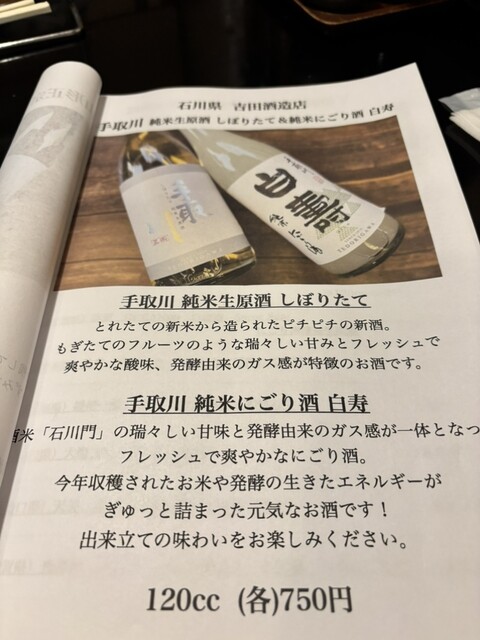 石川県 吉田酒造店
手取川 純米生原酒 しぼりたて&純米にごり酒 白寿
白寿
純米にごり酒
TEDORIGAWA
手取川 純米生原酒 しぼりたて
とれたての新米から造られたピチピチの新酒。
もぎたてのフルーツのような瑞々しい甘みとフレッシュで
爽やかな酸味、発酵由来のガス感が特徴のお酒です。
手取川 純米にごり酒 白寿
酒米「石川門」の瑞々しい甘味と発酵由来のガス感が一体となっ
フレッシュで爽やかなにごり酒。
今年収穫されたお米や発酵の生きたエネルギーが
ぎゅっと詰まった元気なお酒です！
出来立ての味わいをお楽しみください。
120cc (各)750円